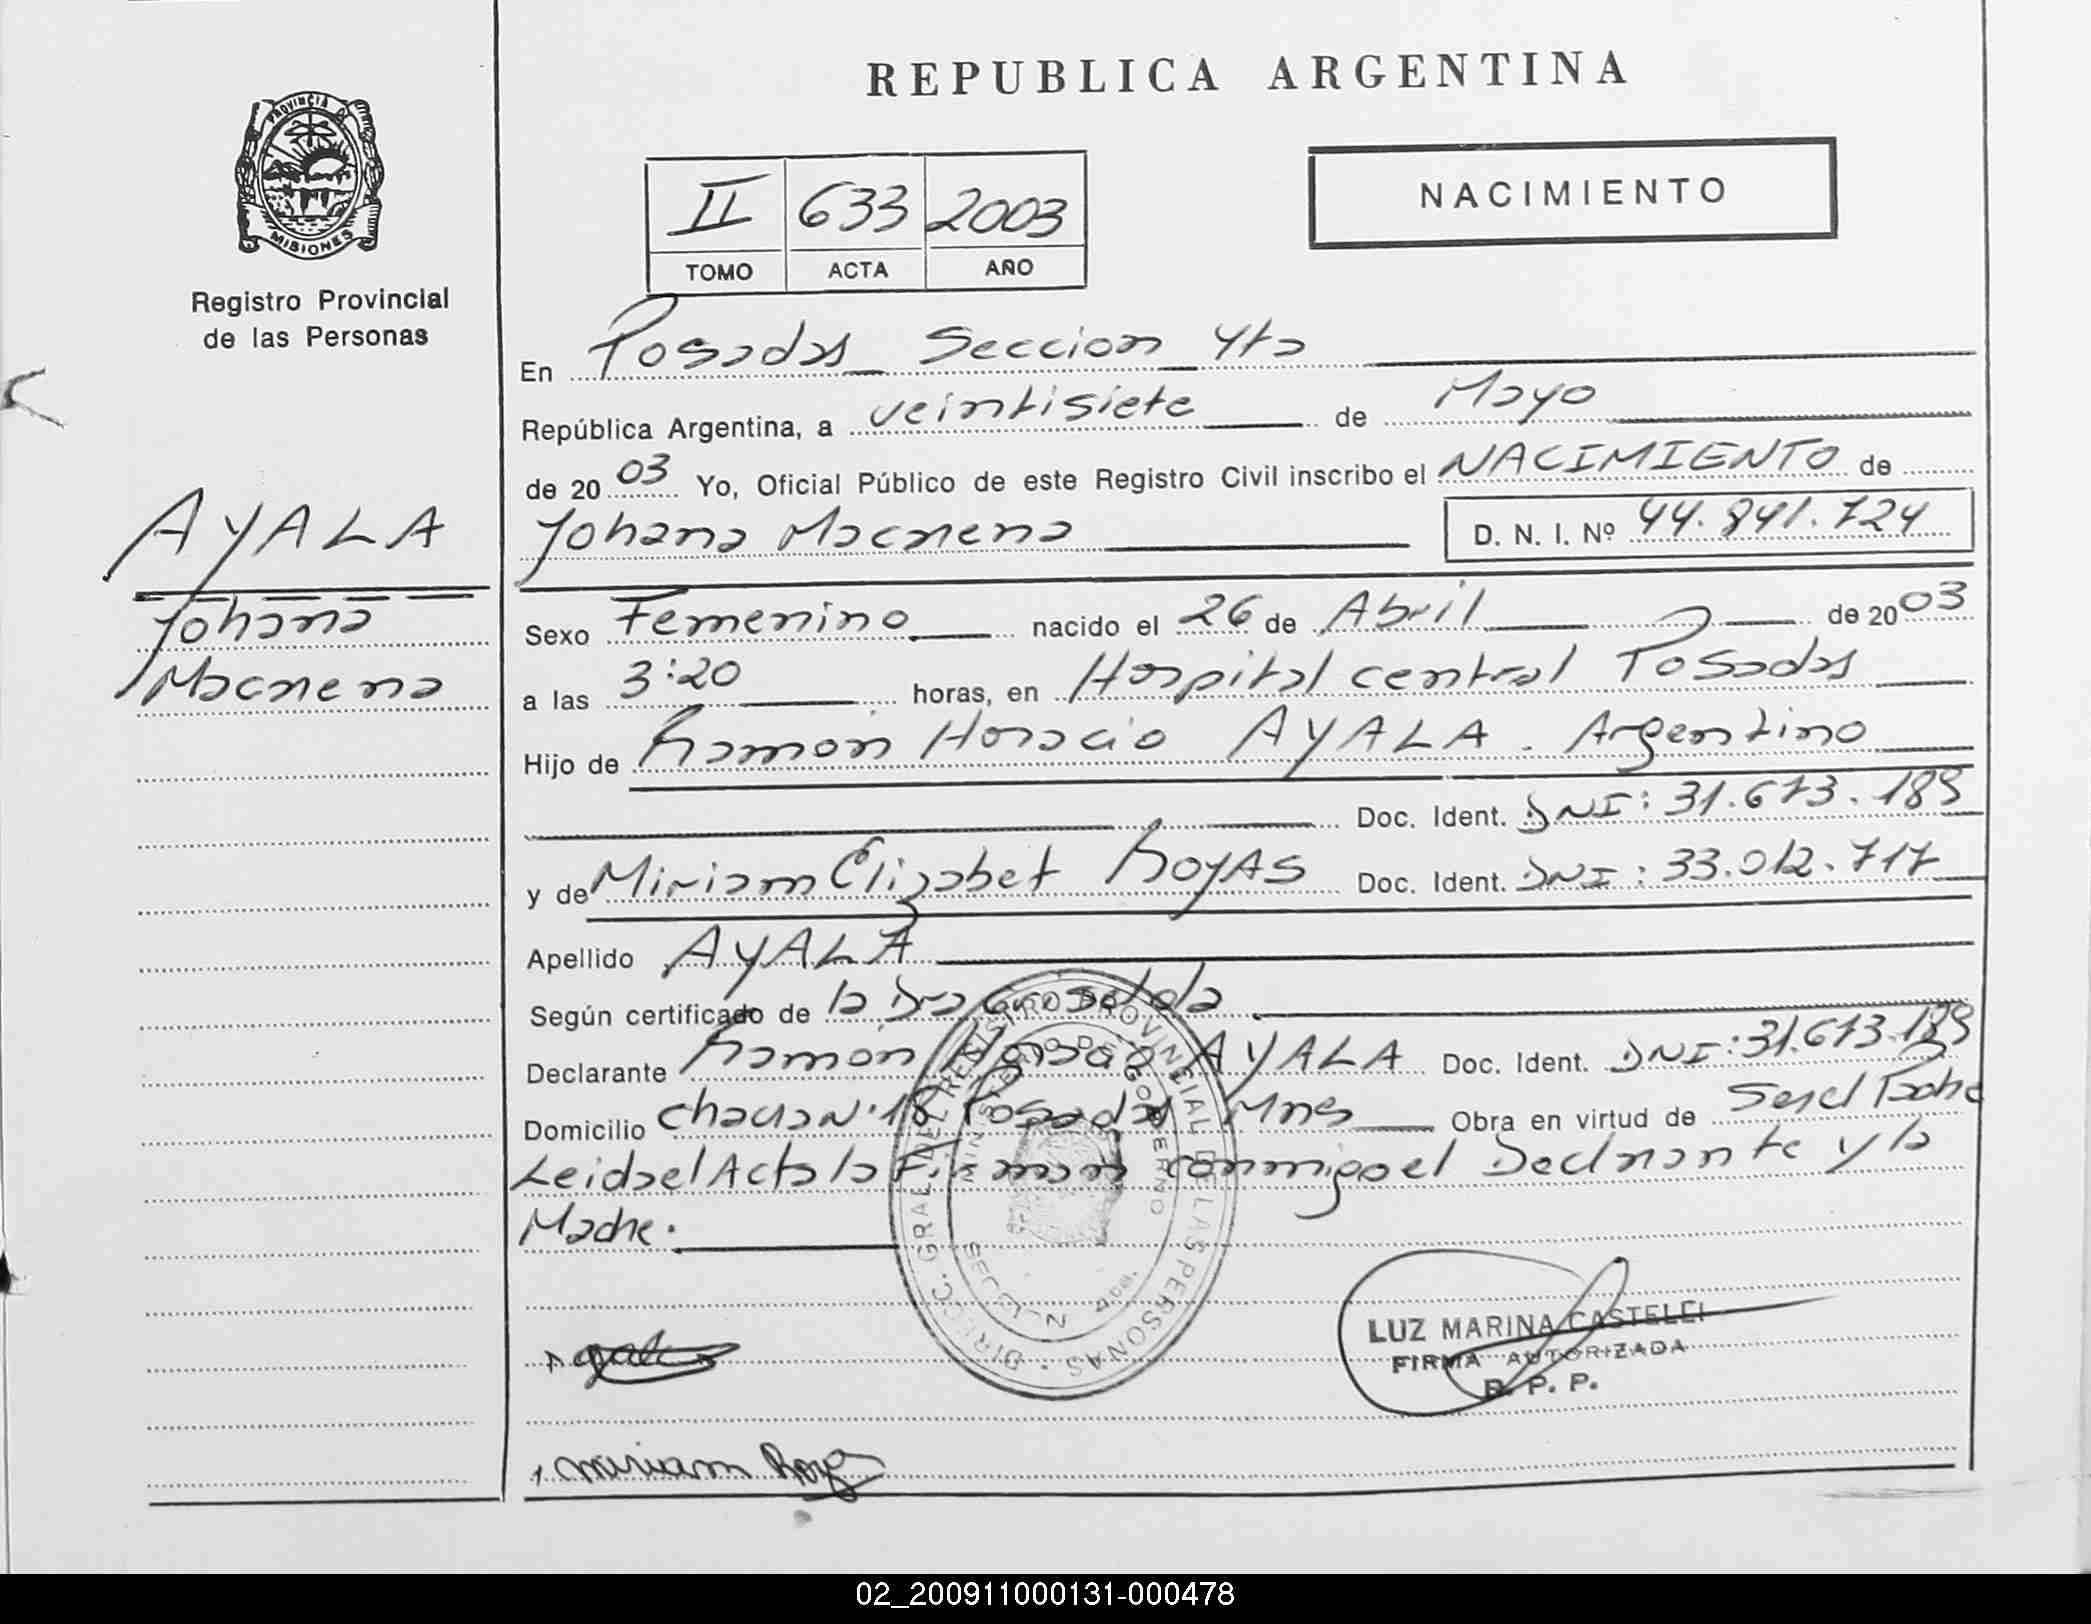 REPUBLICA ARGENTINA
PROVINCIA DE
MISIONES
Registro Provincial
de las Personas
NACIMIENTO
II 633 2003
TOMO ACTA AÑO
En Posadas Seccion 4ta
República Argentina, a veintisiete de Mayo
de 20 03 Yo, Oficial Público de este Registro Civil inscribo el NACIMIENTO de
Johana Macarena D. N. I. Nº 44.841.724
AYALA
Johana
Macarena
Sexo Femenino nacido el 26 de Abril de 20 03
a las 3:20 horas, en Hospital central Posadas
Hijo de Ramon Horacio AYALA. Argentino
Doc. Ident. DNI: 31.673.189
y de Miriam Elizabet ROYAS Doc. Ident. DNI: 33.012.717
Apellido AYALA
Según certificado de la Dra
Declarante Ramon Horacio AYALA Doc. Ident. DNI: 31.673.189
Domicilio Chacra Nº 18 Posadas Mnes Obra en virtud de Ser el Padre
Leida el Acta la Firman conmigo el Declarante y la
Madre.
DIRECC. GRAL. DEL REGISTRO PROVINCIAL DE LAS PERSONAS
MINISTERIO DE GOBIERNO
SECCION
LUZ MARINA CASTELLI
FIRMA AUTORIZADA
R. P. P.
Miriam Roya
02_200911000131-000478